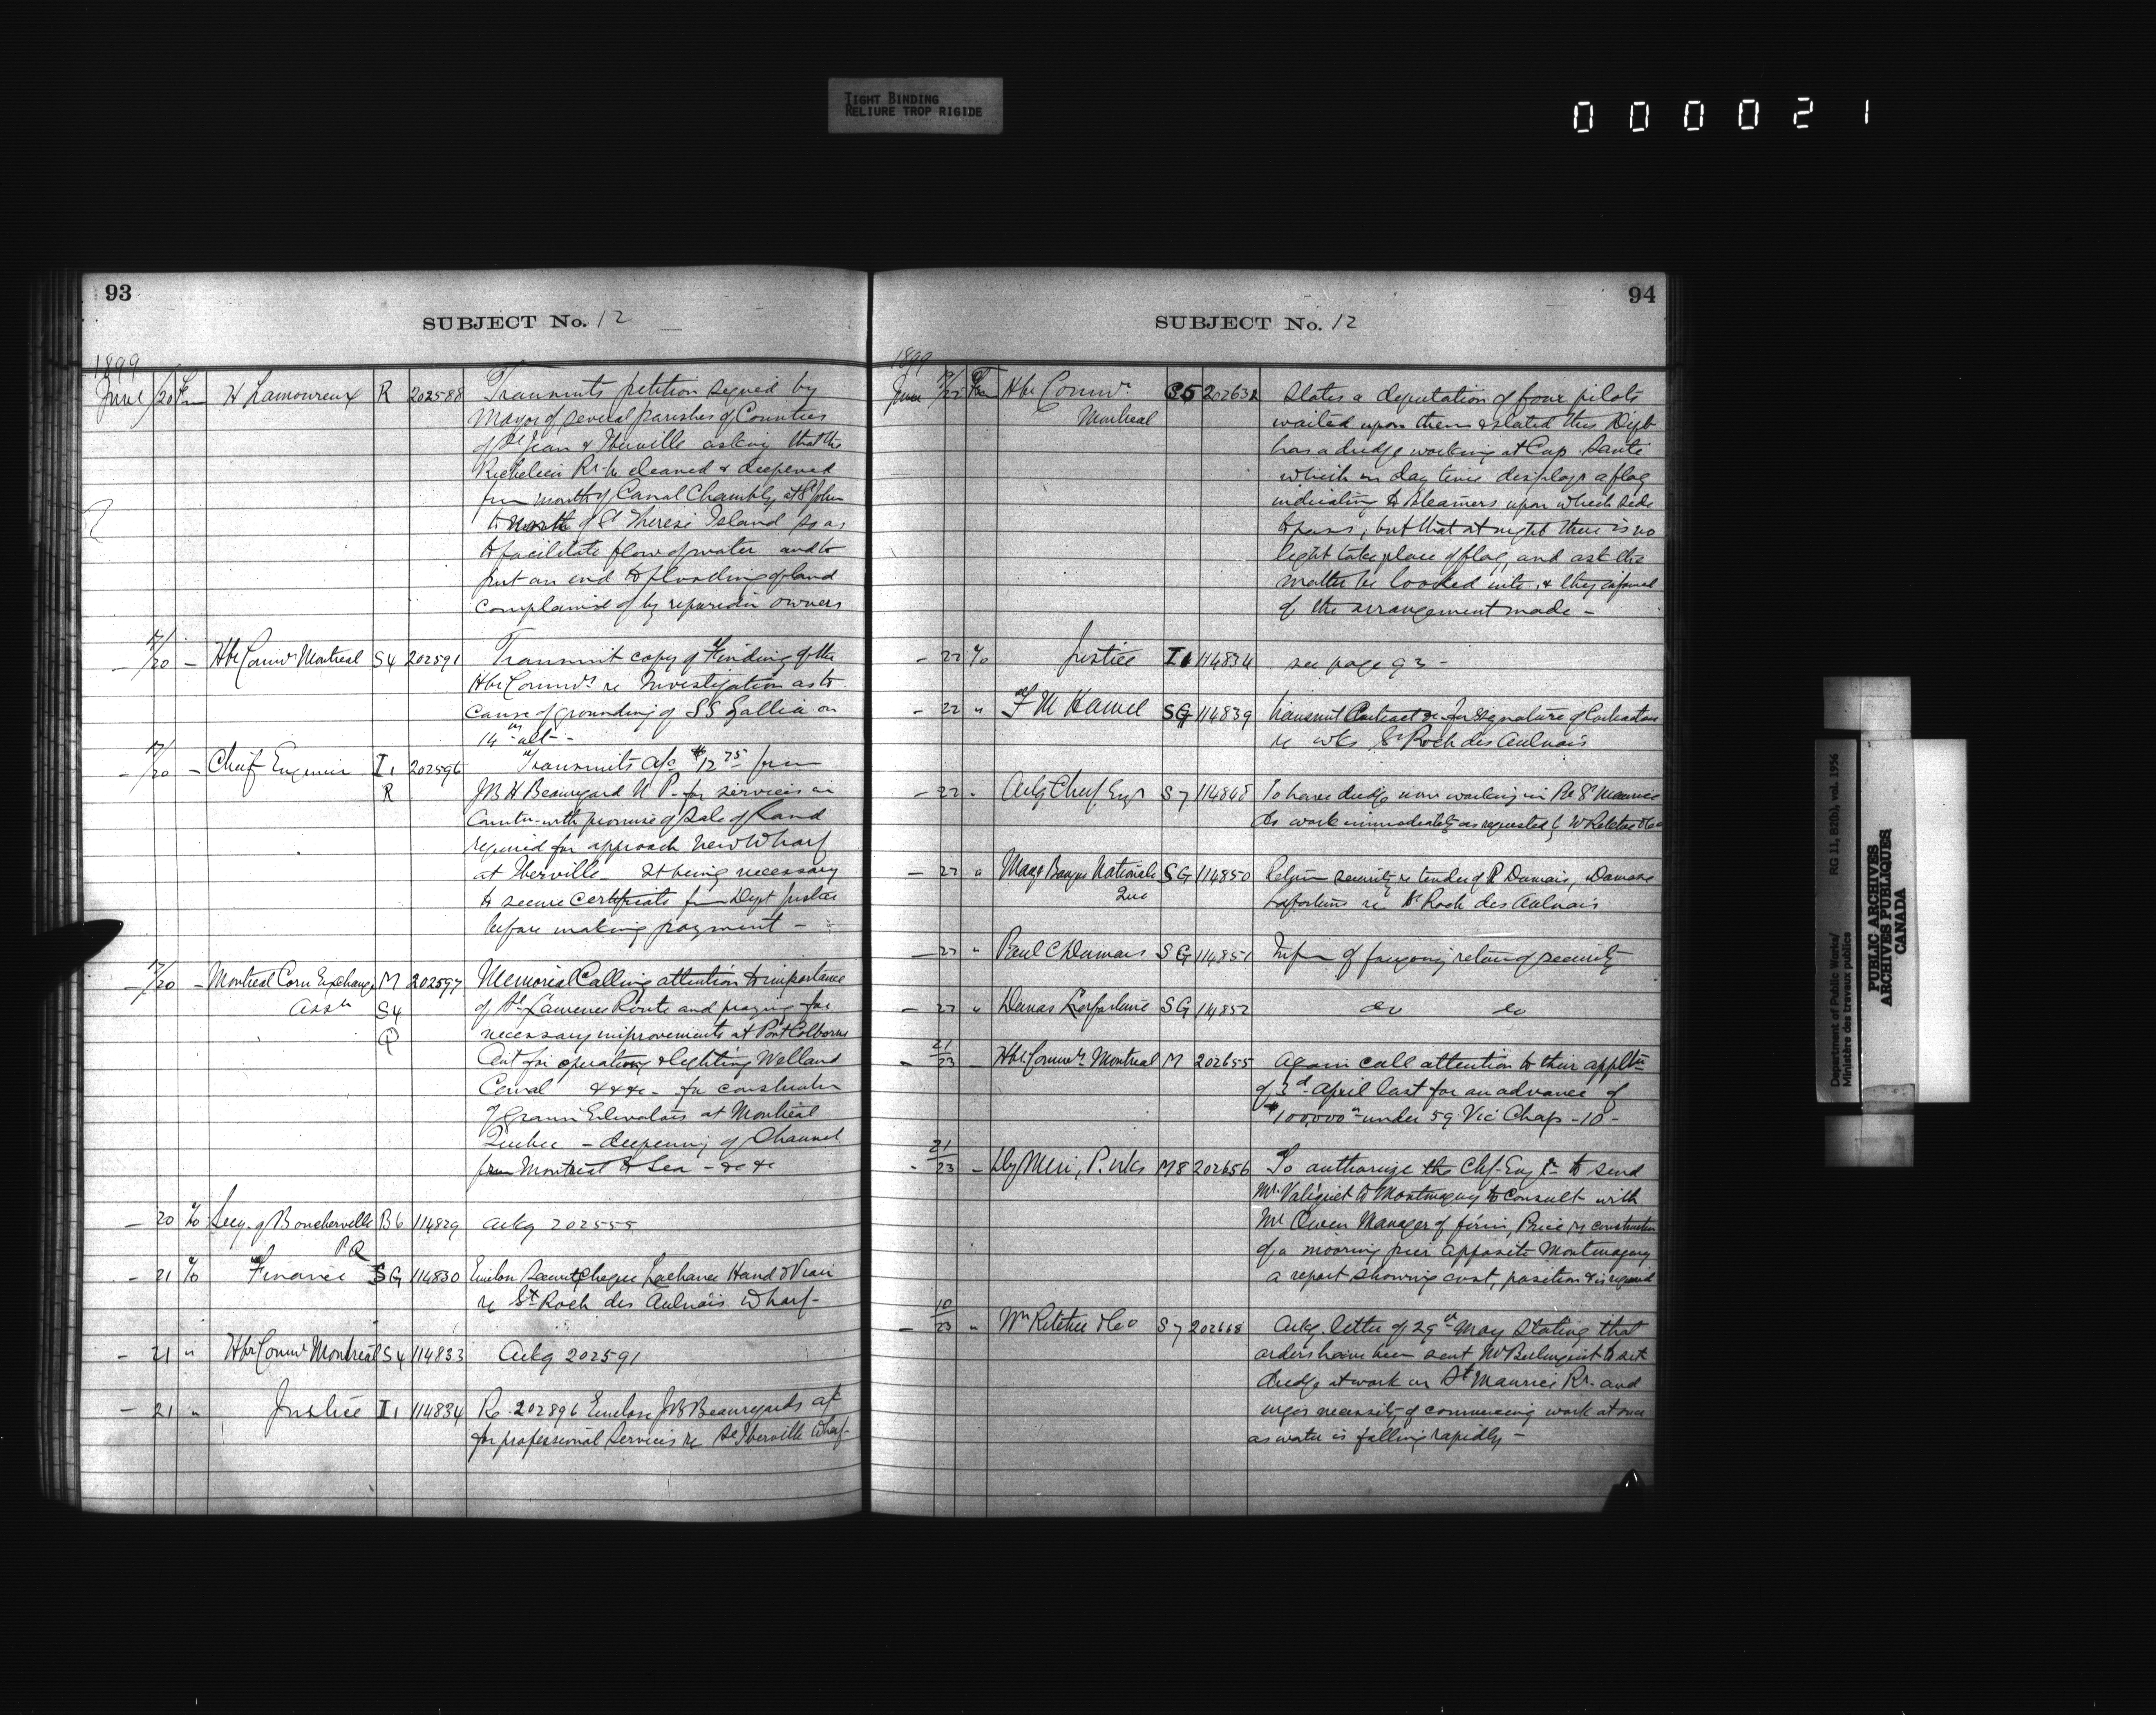 TIGHT BINDING
RELIURE TROP RIGIDE
000021
93
SUBJECT No. 12
1899
June /20 Fm H Lamoureux R 202588 Transmits petition signed by
Mayor of several parishes of Counties
of St Jean & Iberville asking that the
Richelieu Rr. be cleaned & deepened
from mouth of Canal Chambly at St John
to north of St Therese Island so as
to facilitate flow of water and to
put an end to flooding of land
complained of by riparian owners
- 17/20 - Hbr Commrs Montreal S4 202591 Transmit copy of Finding of the
Hbr Commrs re Investigation as to
cause of grounding of SS Gallia on
14th ult -
- 17/20 - Chief Engineer I1 202596 Transmits a/c $12 75 from
R JB H Beauregard N P. for services in
with promise of sale of land
required for approach new Wharf
at Iberville - It being necessary
to secure certificate from Dept Justice
before making payment -
- 17/20 - Montreal Corn Exchange M 202597 Memorial Calling attention to importance
Assn S4 of St Lawrence Route and praying for
Q necessary improvements at Port Colborne
for operating & lighting Welland
Canal &&c - for construction
of Grain Elevators at Montreal
Quebec - deepening of Channel
from Montreal to Sea - &c &c
- 20 To Secy. of Boucherville B6 114829 Ackg 202555
PQ
- 21 To Finance SG 114830 Enclose Security Cheque Lachance Hand &
re St Roch des Aulnais Wharf -
- 21 " Hbr Commrs Montreal S4 114833 Ackg 202591
- 21 " Justice I1 114834 Re. 202896 Enclose JB Beauregards a/c
for professional services re St Iberville Wharf -
94
SUBJECT No. 12
1899
June 19/22 Fm Hbr Commrs S5 202632 States a deputation of four pilots
Montreal waited upon them & stated this Dept
has a dredge working at Cap Santé
which in day time displays a flag
indicating to steamers upon which side
to pass, but that at night there is no
light to take place of flag, and ask the
matter be looked into, & they informed
of the arrangement made -
- 22 To Justice I1 114834 see page 93 -
- 22 " F M Hamel SG 114839 Transmit Contract for signature of Contractors
re wks St Roch des Aulnais
- 22 " Actg Chief Engr S7 114848 To have dredge now working in Rr St Maurice
do work immediately as requested by W Ritchie & Co
- 22 " Mangr Banque Nationale SG 114850 Return security re tender of P Dumais, Damase
Que Laforturne re St Roch des Aulnais
- 22 " Paul C Dumais SG 114851 Infm of foregoing return of security
- 22 " Damas Laforturne SG 114852 do do
- 21/23 - Hbr. Commrs Montreal M 202655 Again call attention to their appltn
of 3d April last for an advance of
$100,000 under 59 Vic Chap - 10 -
- 21/23 - Dy Min, P. Wks M8 202656 To authorize the Chf. Engr to send
Mr Valiquet to Montmagny to consult with
Mr Owen Manager of firm, Price re construction
of a mooring pier opposite Montmagny
a report showing cost, position & is required
- 10/23 " Wm Ritchie & Co S7 202668 Ackg. letter of 29th May Stating that
orders have been sent Mr Berlinguet to set
dredge at work in St Maurice Rr. and
urges necessity of commencing work at once
as water is falling rapidly -
Department of Public Works/
Ministère des travaux publics
RG 11, B2(b), vol. 1956
PUBLIC ARCHIVES
ARCHIVES PUBLIQUES
CANADA